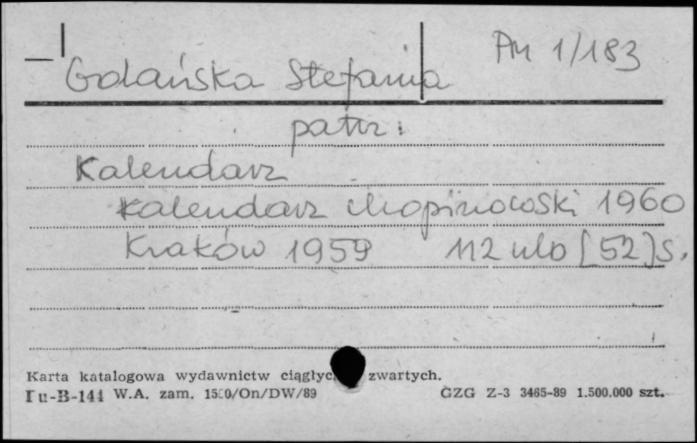 Pm 1/183
Golańska Stefania
patrz:
Kalendarz
Kalendarz chopinowski 1960
Kraków 1959 112 ulb [52] s.
Karta katalogowa wydawnictw zwartych.
Pu-B-144 W.A. zam. /On/DW/89 GZG Z-3 3465-89 1.500.000 szt.